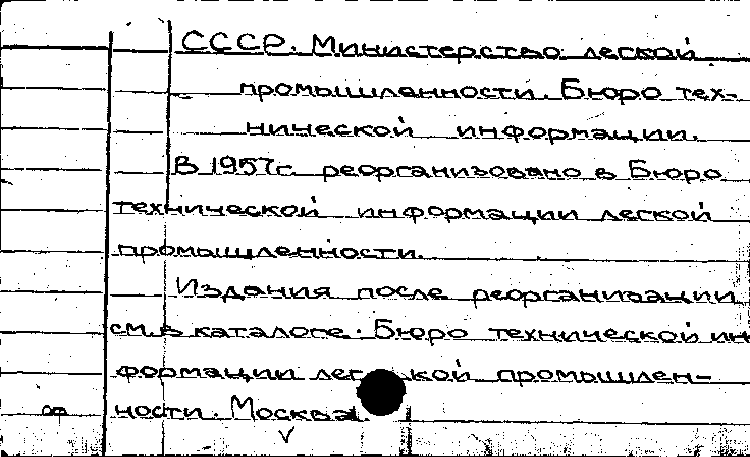 СССР. Министерство легкой
промышленности. Бюро тех-
нической информации.
В 1957г. реорганизовано в Бюро
технической информации легкой
промышленности.
Издания после реорганизации
см. в каталоге. Бюро технической ин
формации легкой промышлен-
ности. Москва